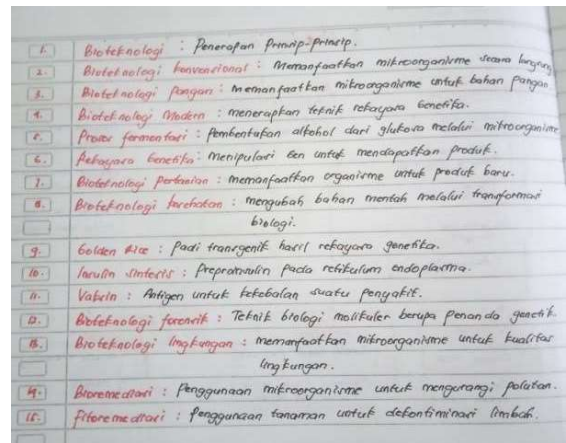 1. Bioteknologi : Penerapan Prinsip-prinsip.
2. Bioteknologi konvensional : Memanfaatkan mikroorganisme secara langsung
3. Bioteknologi pangan : memanfaatkan mikroorganisme untuk bahan pangan
4. Bioteknologi Modern : menerapkan teknik rekayasa genetika.
5. Proses fermentasi : pembentukan alkohol dari glukosa melalui mikroorganisme
6. Rekayasa Genetika : menipulasi Gen untuk mendapatkan produk.
7. Bioteknologi pertanian : memanfaatkan organisme untuk produk baru.
8. Bioteknologi kesehatan : mengubah bahan mentah melalui transformasi
biologi.
9. Golden Rice : padi transgenik hasil rekayasa genetika.
10. Insulin sintesis : Preproinsulin pada retikulum endoplasma.
11. Vaksin : Antigen untuk kekebalan suatu penyakit.
12. Bioteknologi forensik : Teknik biologi molikuler berupa penanda genetik
13. Bioteknologi lingkungan : memanfaatkan mikroorganisme untuk kualitas
lingkungan.
14. Bioremediasi : penggunaan mikroorganisme untuk mengurangi polutan.
15. Fitoremediasi : penggunaan tanaman untuk dekontiminasi limbah.